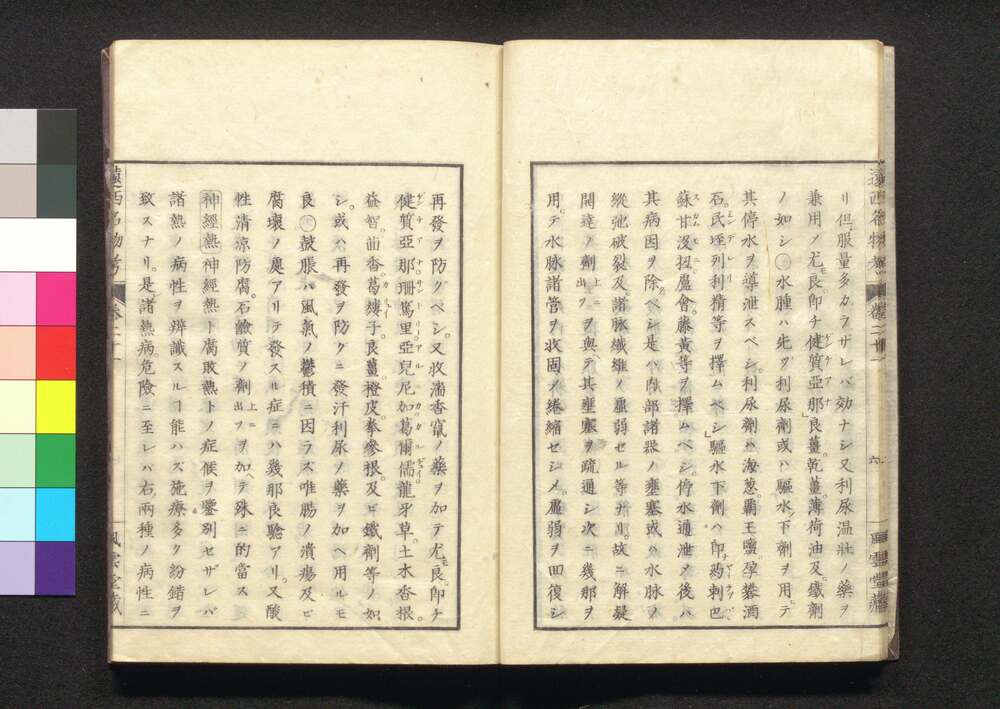 リ但服量多カラザレバ効ナシ又利尿温壯ノ藥ヲ
兼用ノ尤良即チ健質亞那良薑乾薑薄荷油及鐵劑
ノ如シ 水腫ハ先ヅ利尿劑或ハ驅水下劑ヲ用テ
其停水ヲ導泄スベシ利尿劑ハ海葱覇王鹽孕礬酒
石民埀列利精等ヲ擇ムベシ驅水下劑ハ即葯剌巴
蘇甘没扭盧會藤黃等ヲ擇ムベシ停水通泄ノ後ハ
其病因ヲ除クベシ是ハ内部諸器ノ壅塞或ハ水脉ノ
縱弛破裂及諸脉纖維ノ虛弱セル等ナリ故ニ解凝
開達ノ劑上ニ出ツヲ與ヘテ其壅塞ヲ疏通シ次ニ幾那ヲ
用テ水脉諸管ヲ收固ノ綣縮セシメ虛弱ヲ囬復シ
遠西名物考 卷二十一 六 風雲堂藏
再發ヲ防グベシ又收濇香竄ノ藥ヲ加テ尤良即チ
健質亞那珊篤里亞兒尼加葛爾儒龍牙草土木香根
益智菖香葛縷子良薑橙皮拳參根及ビ鐵劑等ノ如
シ或ハ再發ヲ防グニ發汗利尿ノ藥ヲ加ヘ用ルモ
良 鼓脹ハ風氣ノ鬱積ニ因ラズ唯腸ノ潰瘍及ビ
腐壞ノ患アリテ發スル症ニハ幾那良驗アリ又酸
性清凉防腐石鹼質ノ劑上ニ出ツヲ加ヘテ殊ニ的當ス
神經熱 神經熱ト腐敗熱トノ症候ヲ鑒別セザレバ
諸熱ノ病性ヲ辨識スルヿ能ハズ施療多ク紛錯ヲ
致スナリ是諸熱病危險ニ至レバ右兩種ノ病性ニ
遠西名物考 卷二十一 風雲堂藏